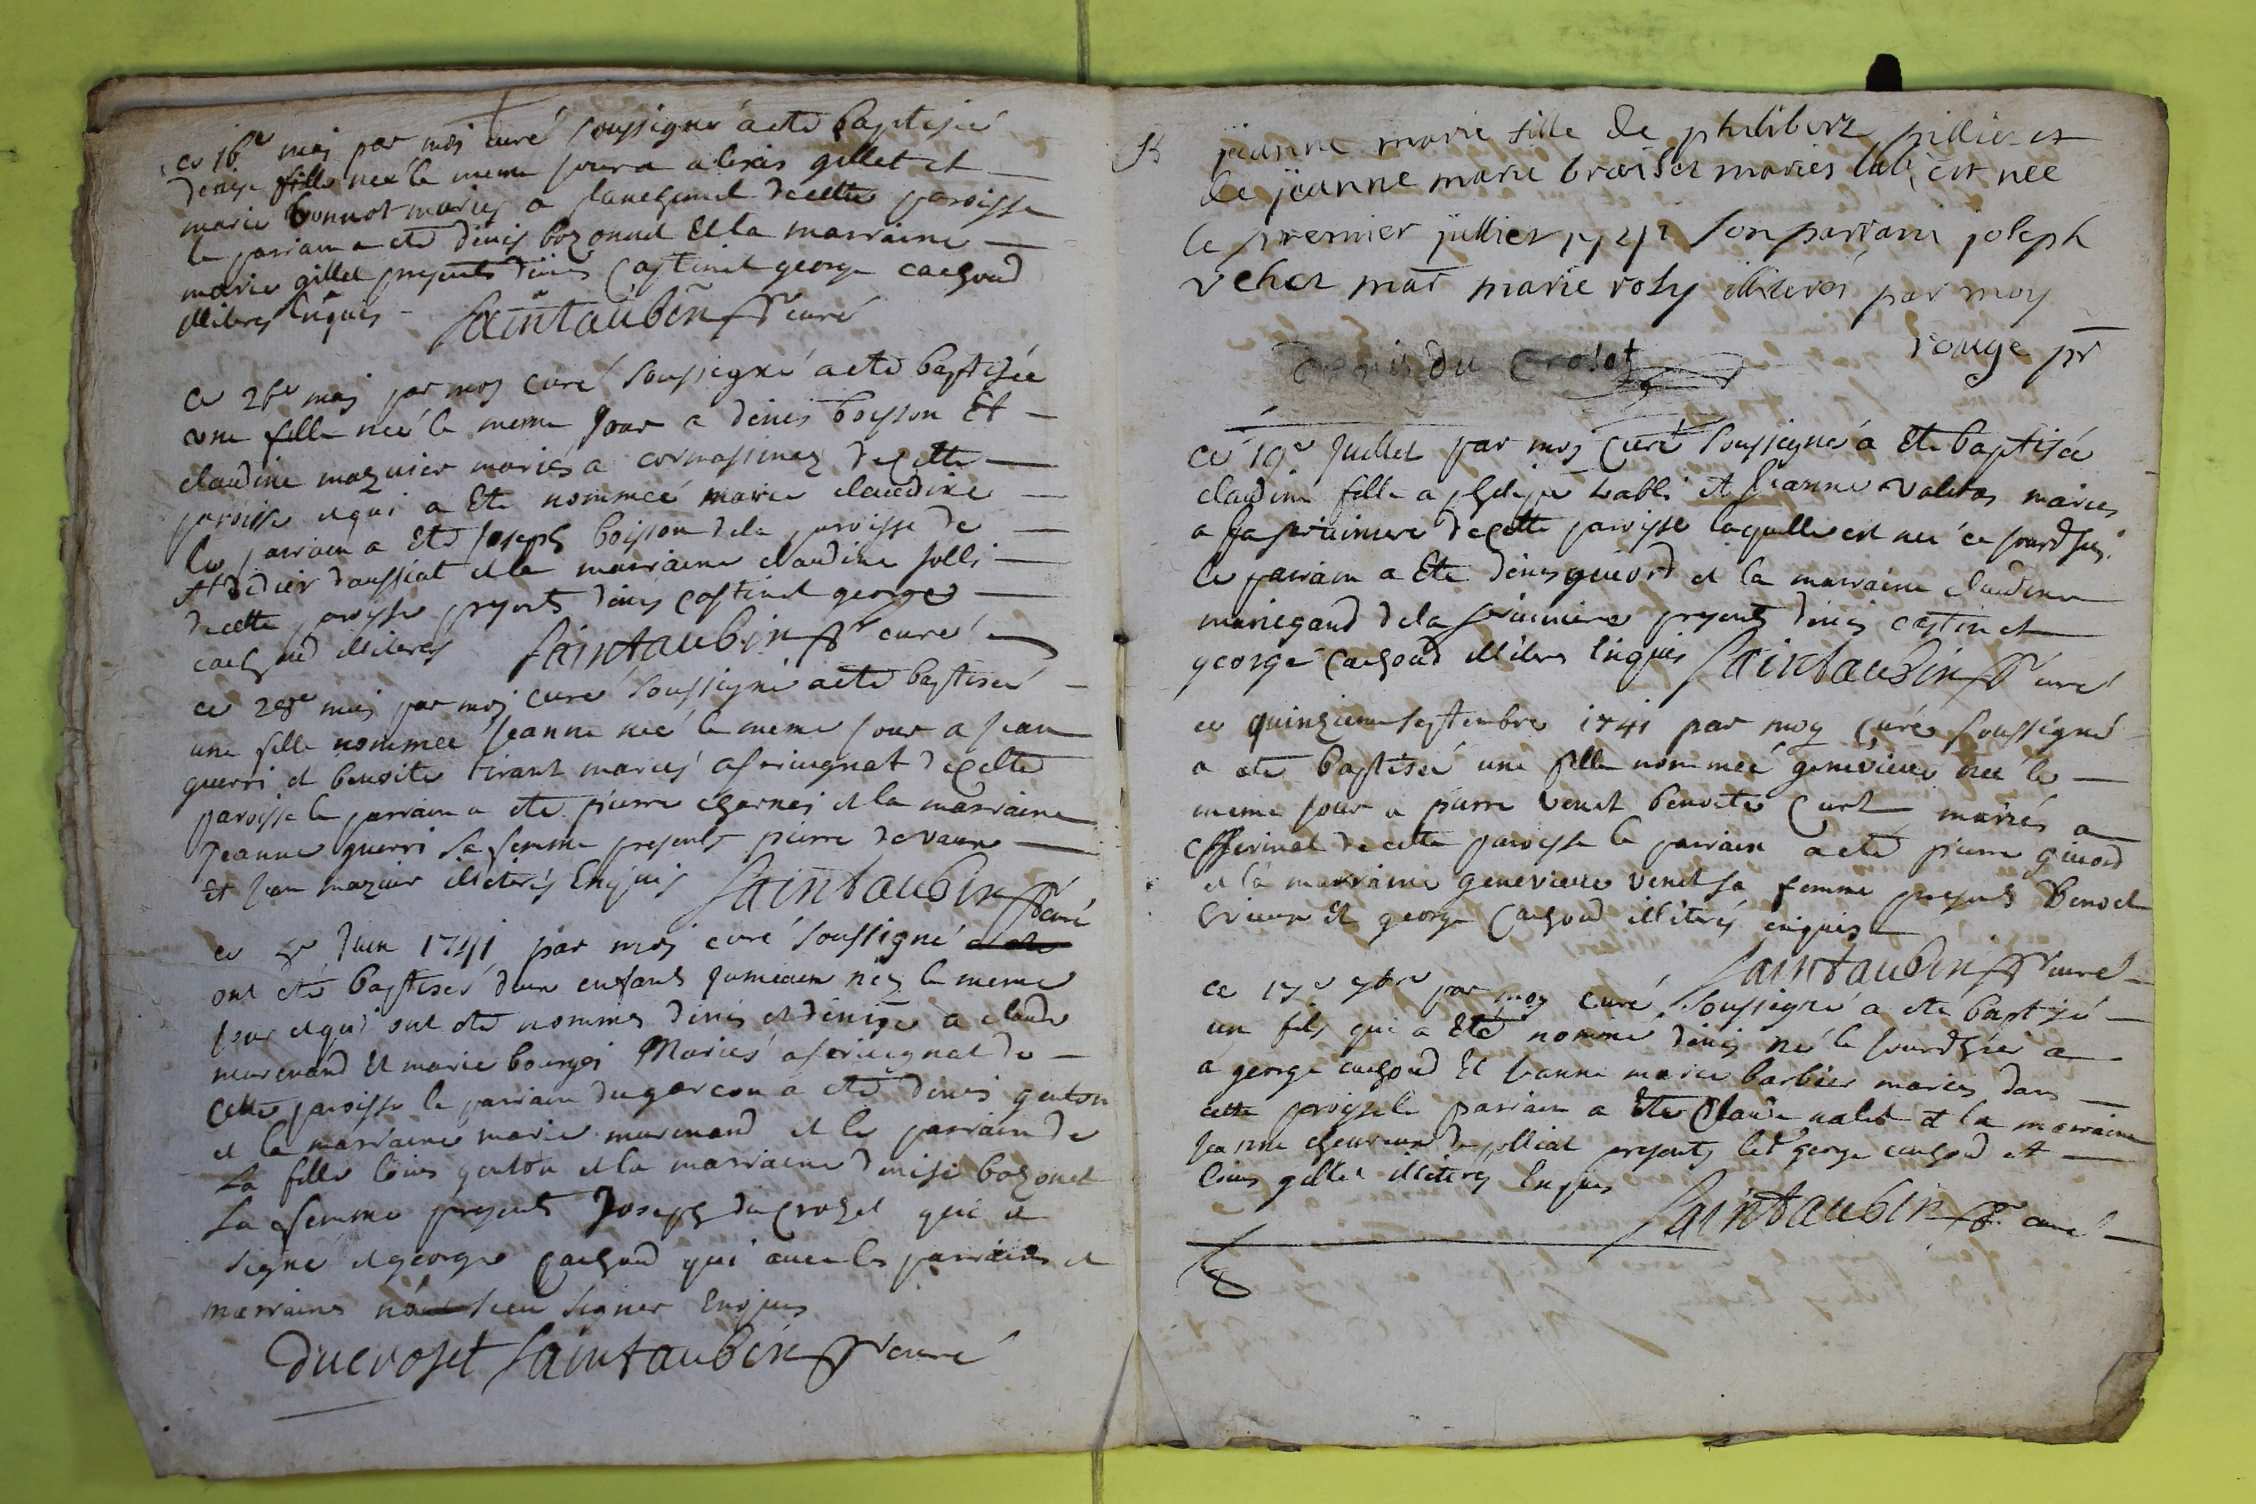 ce 16e mai par moi curé soussigné a eté baptisée
denise fille née le meme jour a alexis gillet et
marie bonnot mariés a planchemel de cette paroisse
le parrain a eté denis bozonnet et la marraine
marie gillet presents denis castinel george cachoud
illiteres enquis Saintaubin ptr curé
ce 26e mai par moi curé soussigné a eté baptisée
une fille née le meme jour a denis boisson Et
claudine mazuier mariés a cormassinez de cette
paroisse et qui a Eté nommée marie claudine
le parrain a Eté joseph boisson de la paroisse de
st didier daussiat et la marraine claudine
de cette paroisse presents denis castinel george
cachoud illiteres Saintaubin ptr curé
ce 28e mai par moi curé soussigné a eté baptisée
une fille nommée jeanne née le meme jour a jean
guerri et benoite tirant mariés a de cette
paroisse le parrain a eté pierre charnei et la marraine
jeanne guerri sa femme presents pierre devaux
Et jean mazuier illiterés Enquis Saintaubin ptr curé
ce juin 1741 par moi curé soussigné
ont eté baptisés deux enfants jumeaux nés le meme
jour et qui ont eté nommes denis et denise a claude
et marie bourgei Mariés a de
cette paroisse le parrain du garcon a eté denis genton
et la marraine marie et le parrain de
La fille genton et la marraine denise bozonet
sa femme presents Joseph du Crozet qui a
signé et george cachoud qui avec les parrains et
marraines n'ont sceu signer Enquis
Ducroset Saintaubin ptr curé
jeanne marie fille de philibert pillier et
de jeanne marie mariés est née
le premier jullier 1741 son parrain joseph
veher mar marie roly illiterés par moy
rouge pr
du crosot
ce 19e Juillet par moi Curé soussigné a Eté baptisée
claudine fille a et jeanne mariés
a la de cette paroisse laquelle est née ce jourdhui
le parrain a Eté denis givord et la marraine claudine
mariegand de la presents denis castinel
george Cachoud illiteres Enquis Saintaubin ptr curé
ce quinzieme septembre 1741 par moy Curé soussigné
a eté baptisée une fille nommée genevieve née le
meme jour a pierre venet benoite Curt mariés a
de cette paroisse le parrain a eté pierre givord
et la marraine genevieve venet sa femme presents Benoit
Et george Cachoud illiterés enquis
Saintaubin ptr curé
ce 17e 7bre par moy curé soussigné a eté baptisé
un fils qui a Eté nommé denis né le jourdhier a
a george cachoud Et jeanne marie barbier mariés dans
cette paroisse le parrain a Eté Claude nalet et la marraine
jeanne chevreux de polliat presents led george cachoud et
illiteres Enquis
Saintaubin ptr curé